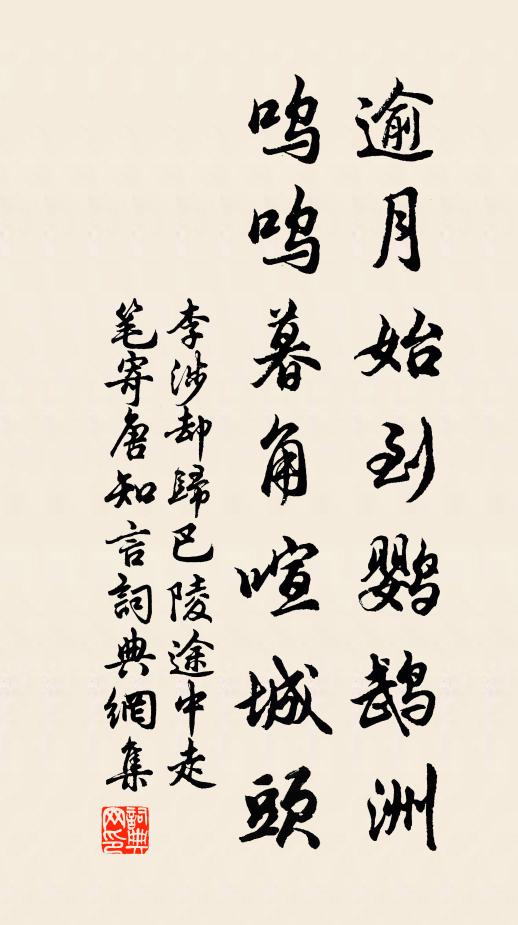 逾月始到鹦鹉洲
呜呜暮角喧城头
李涉却歸巴陵途中走
笔寄唐知言詞典網集
詞典
网印